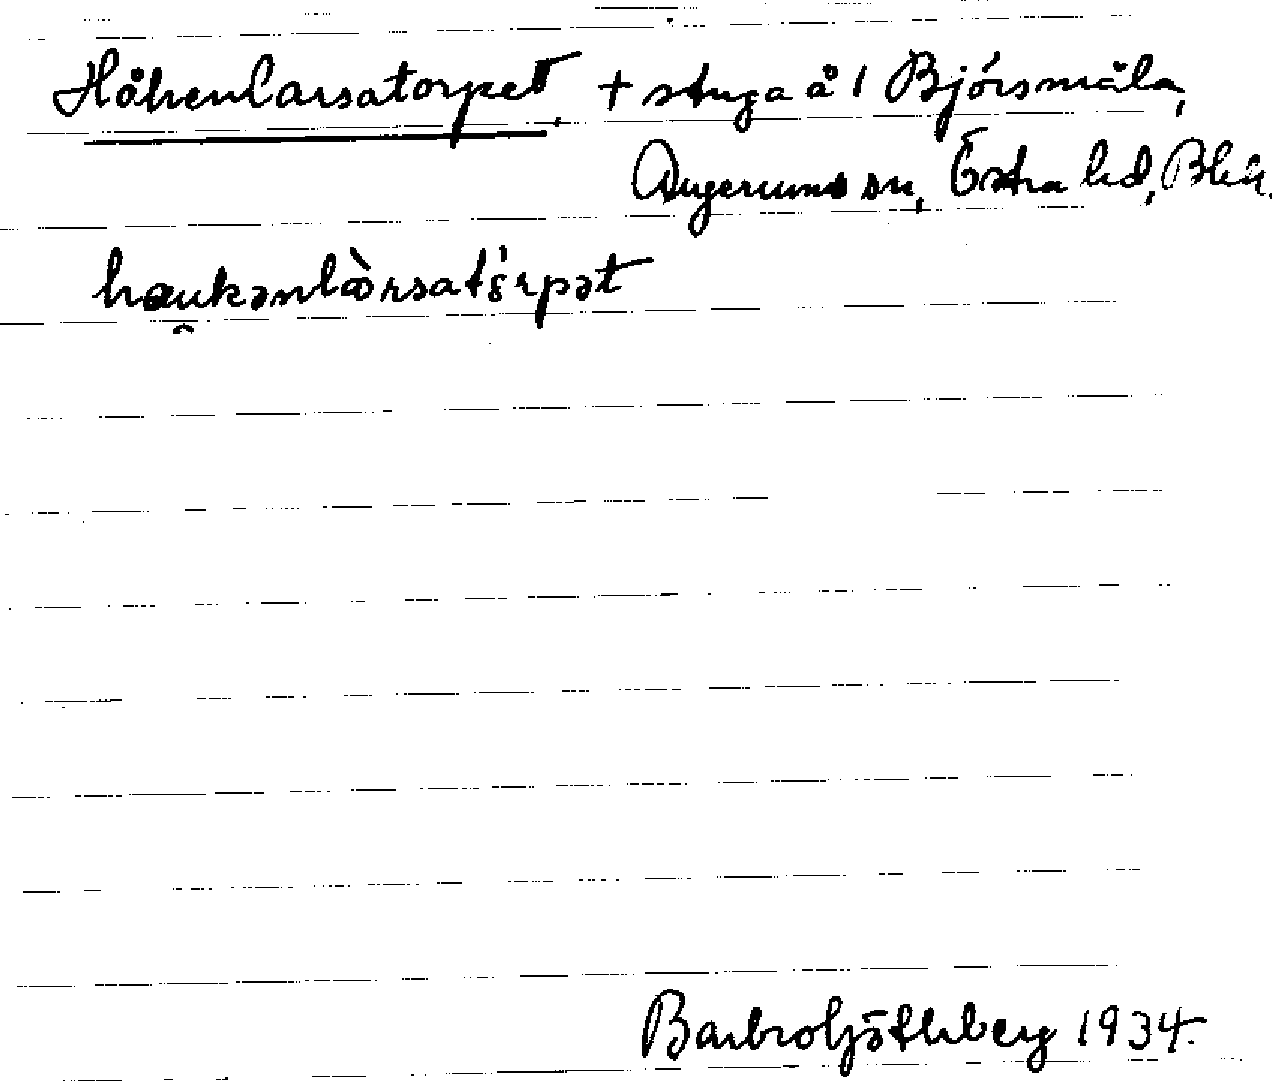 Håkenlarsatorpet + stuga å 1 Björsmåla,
Augerums sn, Östra hd, Blek.
haukənlàrsatǿrpət
Barbro Götlberg 1934.